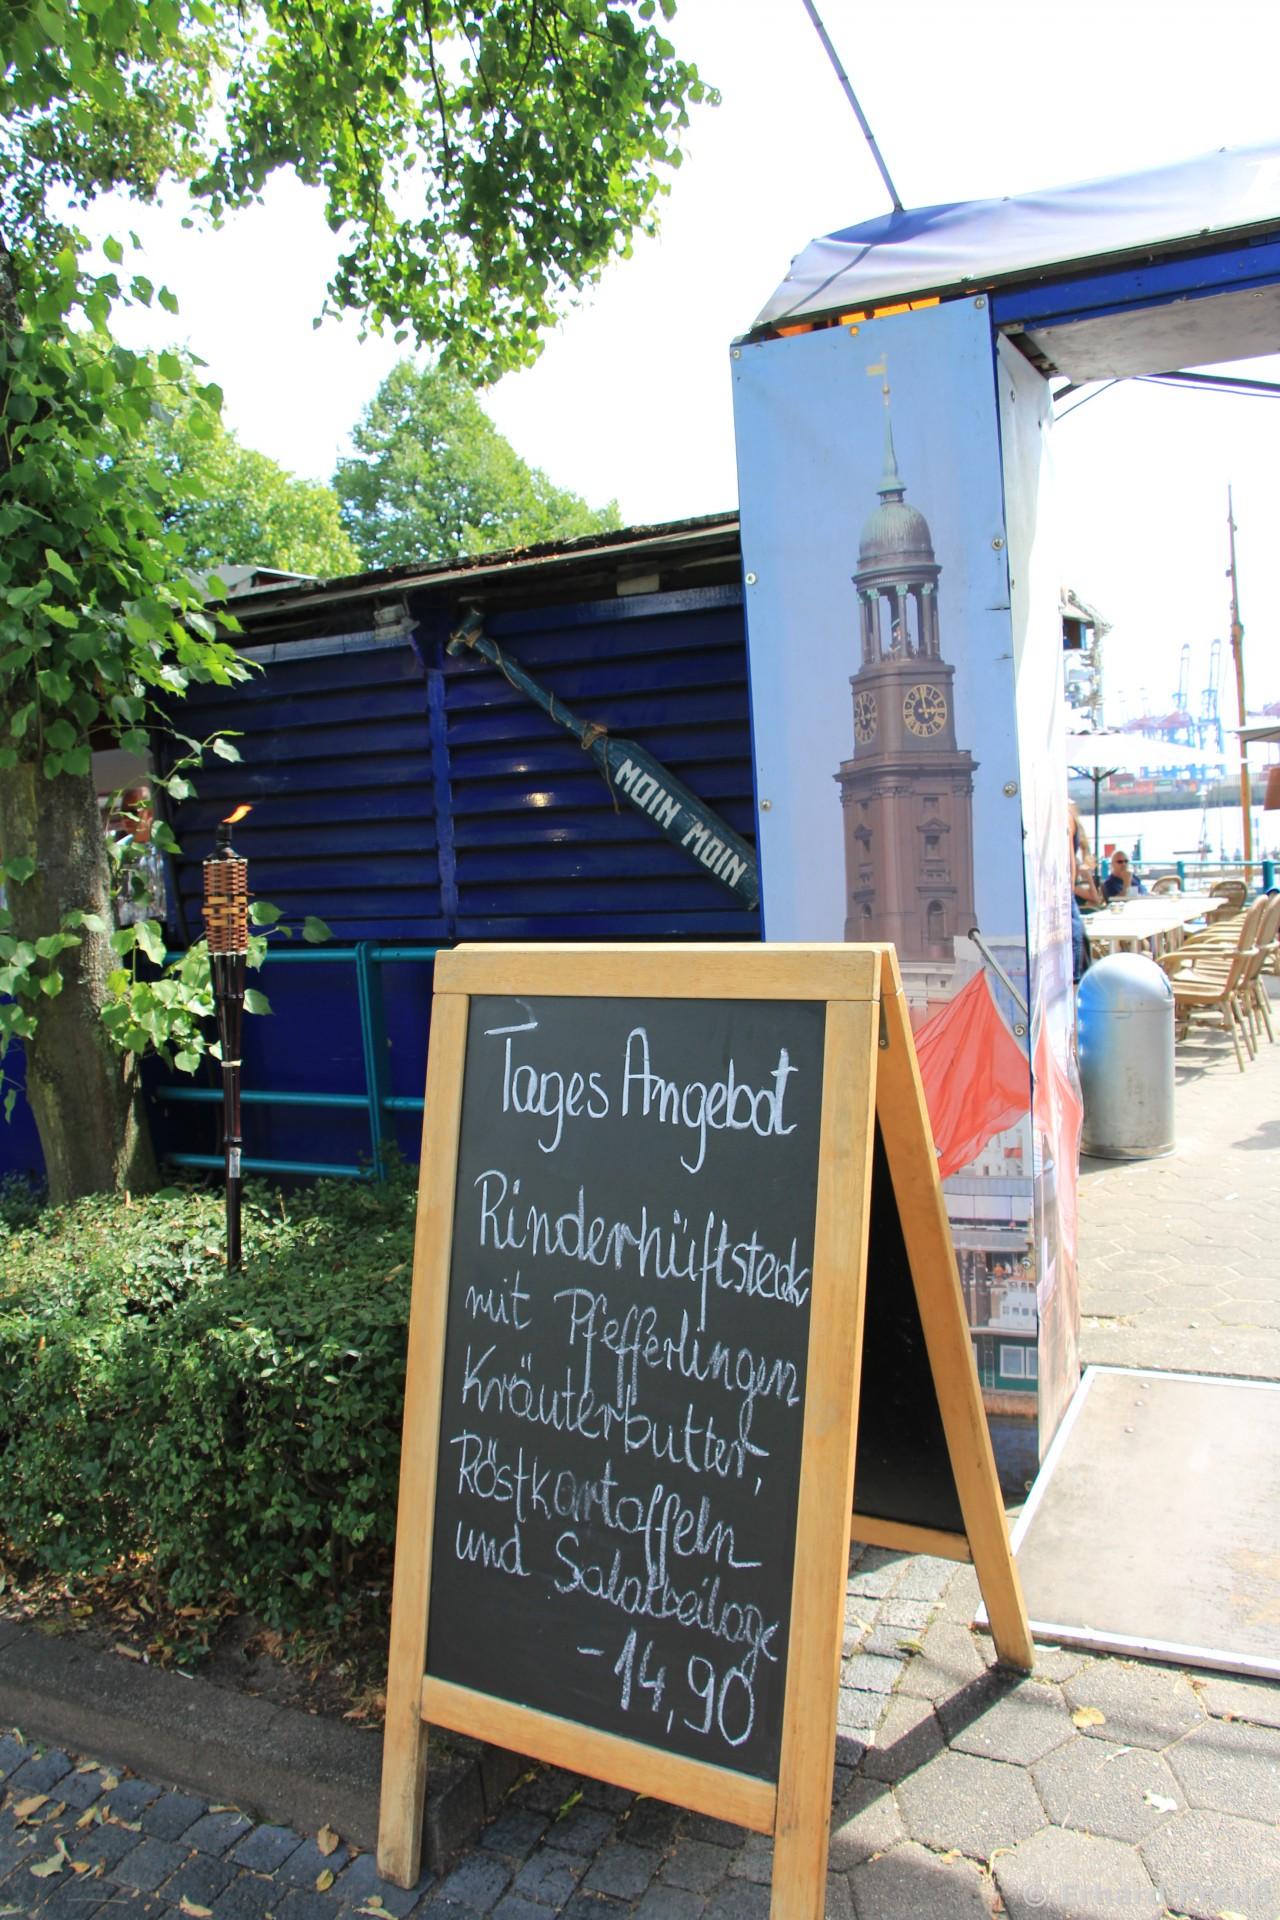 MOIN MOIN
Tages Angebot
Rinderhüftsteak
mit Pfefferlingen
Kräuterbutter,
Röstkartoffeln
und Salatbeilage
-14,90